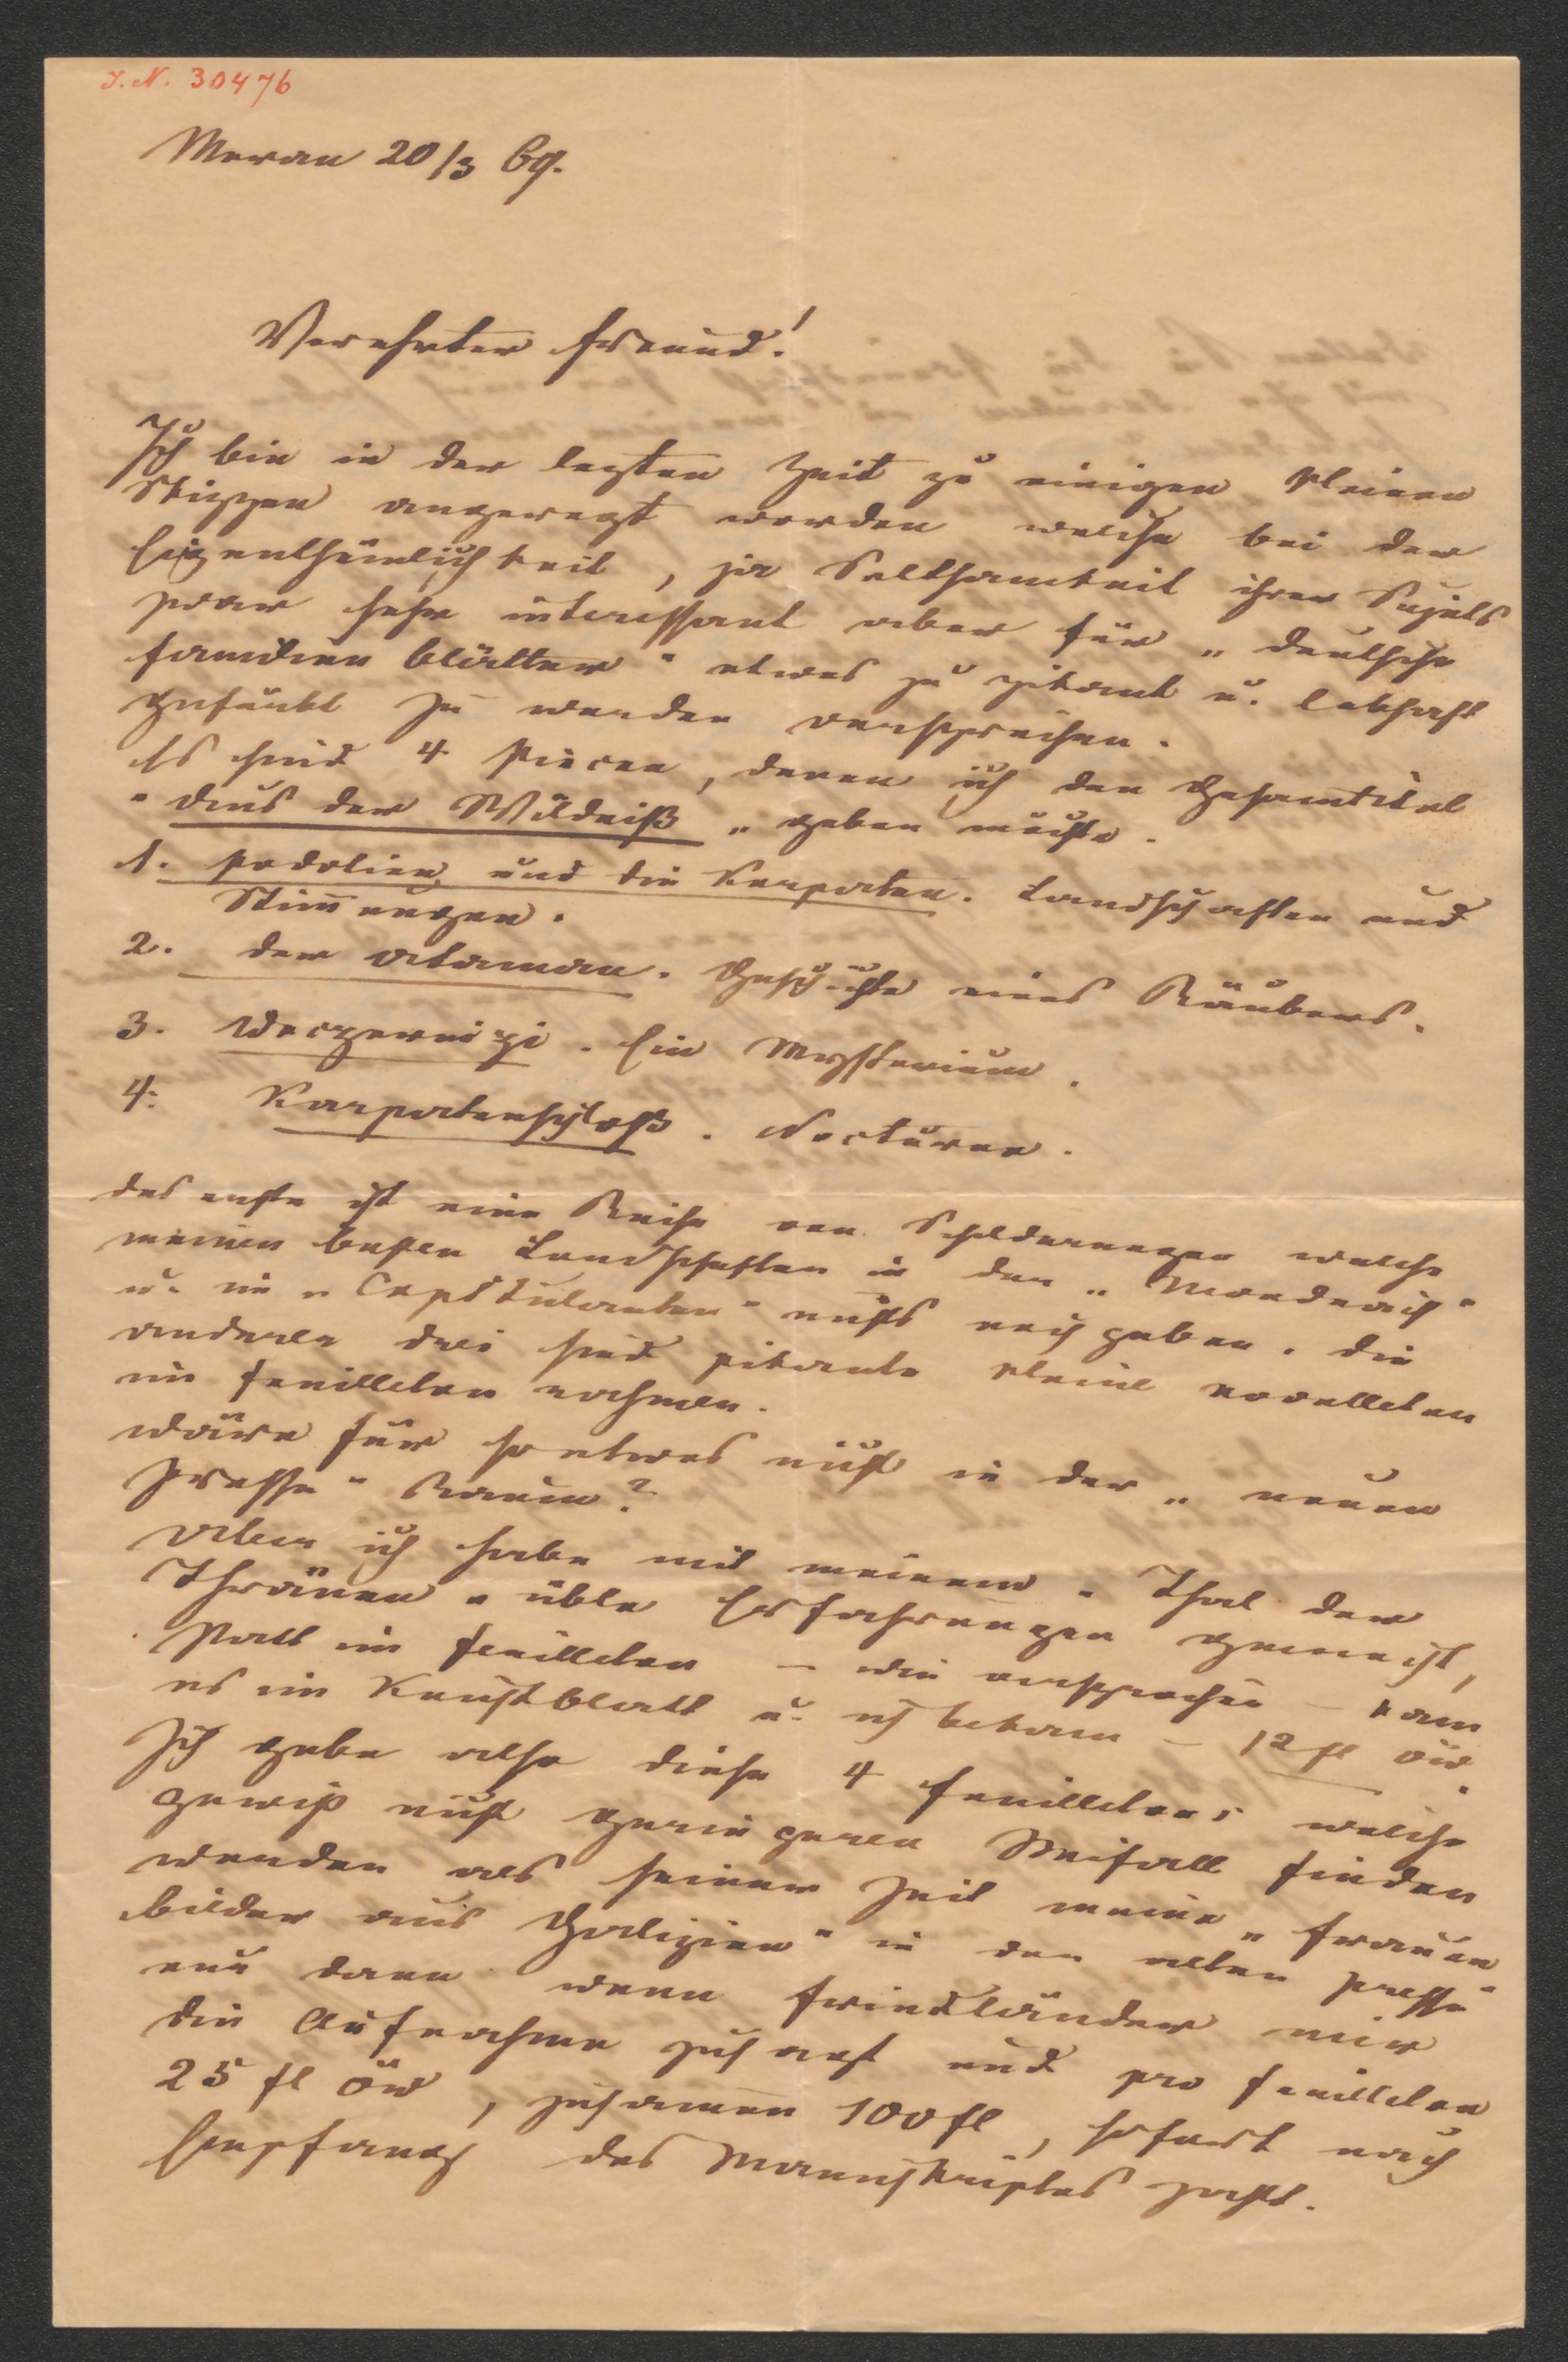 J. N. 30476
Meran 20/3 69.
Verehrter Freund!
Ich bin in der lezten Zeit zu einigen kleinen
Skizzen angeregt worden welche bei der
Eigenthümlichkeit, ja Seltsamkeit ihrer Sujets
zwar sehr interessant aber für „deutsche
Familien blätter" etwas zu pikant u. lebhaft
gefärbt zu werden versprechen.
Es sind 4 Piecen, denen ich den Gesamtitel
"Aus der Wildniß„ geben möchte.
1. Podolien und die Karpaten. Landschaften und
Stim̄ungen.
2. Der Ataman. Geschichte eines Räubers.
3. Weczernizi. Ein Mysterium.
4. Karpatenschloß. Nocturne.
Das erste ist eine Reihe von Schilderungen welche
meinen besten Landschaften in der „Mondnacht"
u. im „Capitulanten" nichts nach geben. Die
anderen drei sind pikante kleine Novelleten
im Feuilleton rahmen.
Wäre für so etwas nicht in der „neuen
Presse" Raum?
Aber ich habe mit meinem "Thal der
Thränen" üble Erfahrungen gemacht,
statt im Feuilleton – wie versprochen – kam
es im Kunstblatt u. ich bekam – 12 fl öw.
Ich gebe also diese 4 Feuilletons welche
gewiß nicht geringeren Beifall finden
werden als seiner Zeit meine „Frauen
bilder aus Galizien" in der alten Presse"
nur dann wenn Friedländer mir
die Aufnahme zusagt und pro Feuilleton
25 fl öw, zusam̄en 100 fl, sofort nach
Empfang des Manuskriptes zahlt.